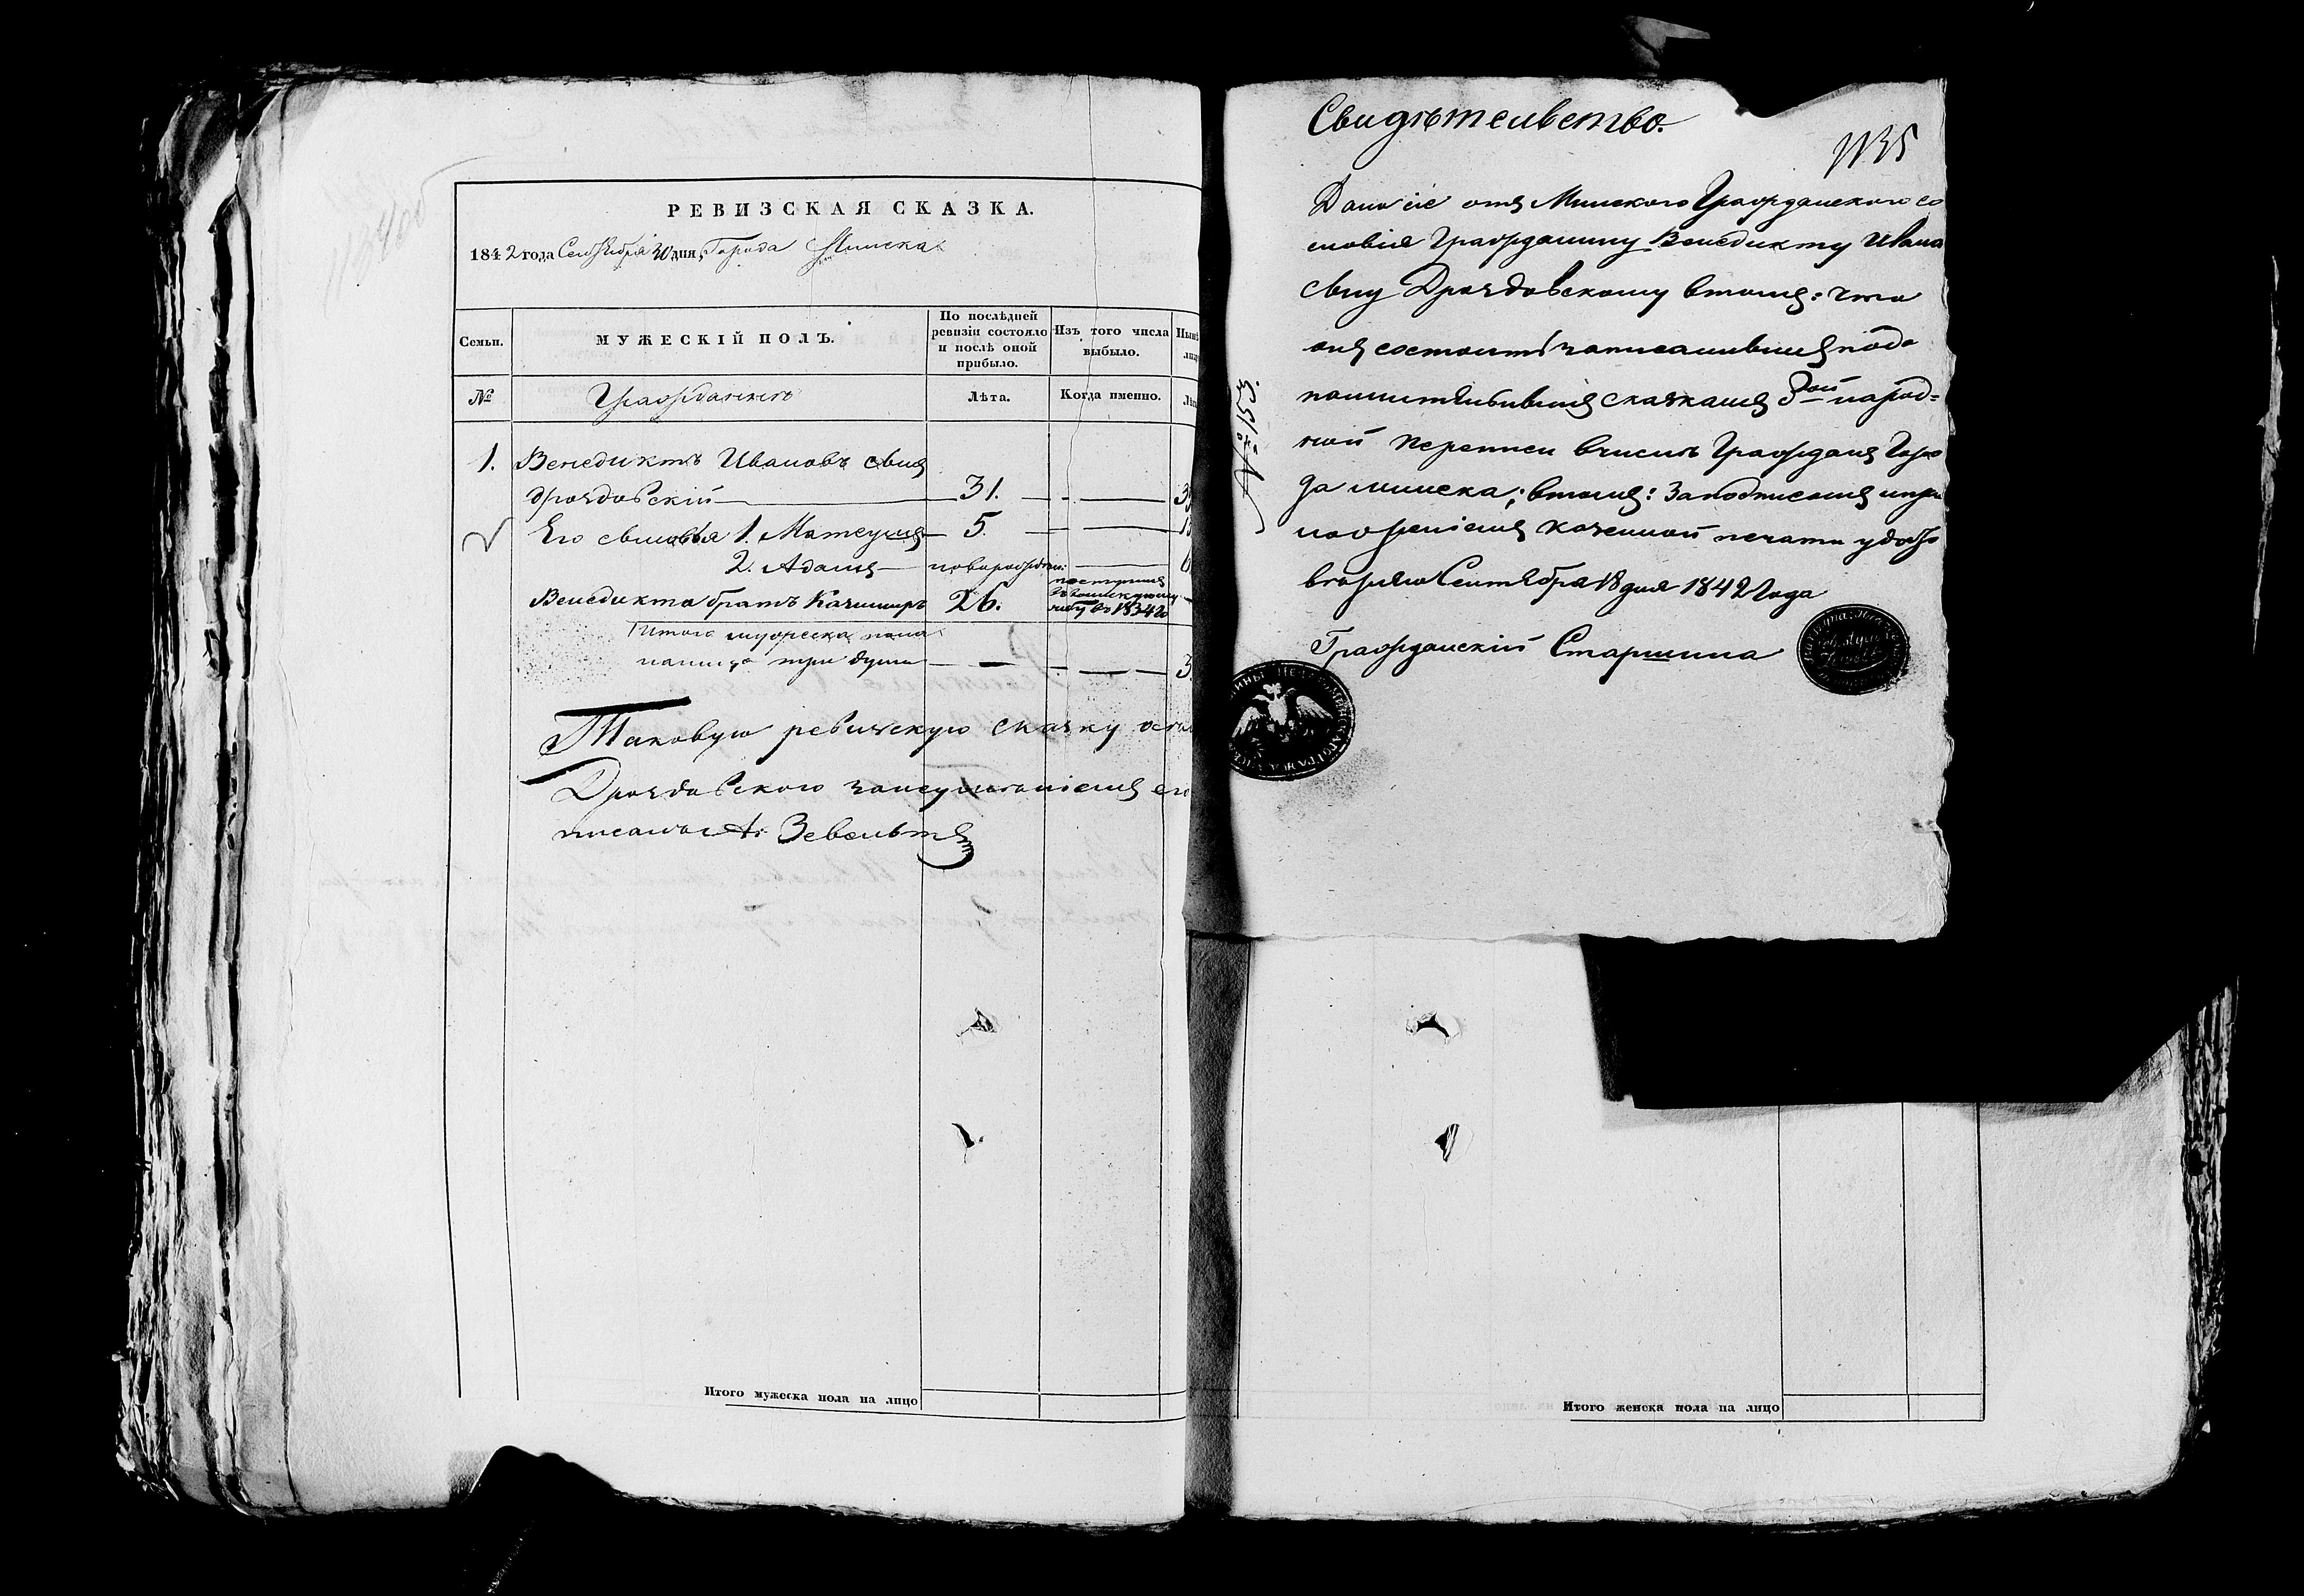 РЕВИЗСКАЯ СКАЗКА.
1842 года Сентября 30 дня, Города Минска
Семьи.
МУЖЕСКІЙ ПОЛЪ.
По послѣдней
ревизіи состояло
и послѣ оной
прибыло.
Изъ того числа
выбыло.
№
Гражданинъ
Лѣта.
Когда именно.
1. Венедиктъ Ивановъ сынъ
Дроздовскій 31.
Его сыновья 1. Матеушъ 5.
2. Адамъ новорожден:
Венедикта братъ Казимиръ 26. поступилъ
въ 1834 го
Итого мужеска пола
налицо три души 3.
Таковую ревизскую сказку
Дроздовского
писалъ А:
Итого мужеска пола на лицо
Свидѣтельство.
1135
Дано сіе отъ Минского Гражданского со
словія Гражданину Венедикту Ивано
сыну Дроздовскому втомъ: что
онъ состоитъ записаннымъ подо
полнительнымъ сказкамъ 8ой народ=
ной переписи вчислѣ Гражданъ Горо
да Минска; втомъ: Заподписомъ ипри
ложеніемъ казенной печати удосто
вѣряю Сентября 18 дня 1842 Года
Гражданскій Старшина
№ 153
Итого женска пола на лицо